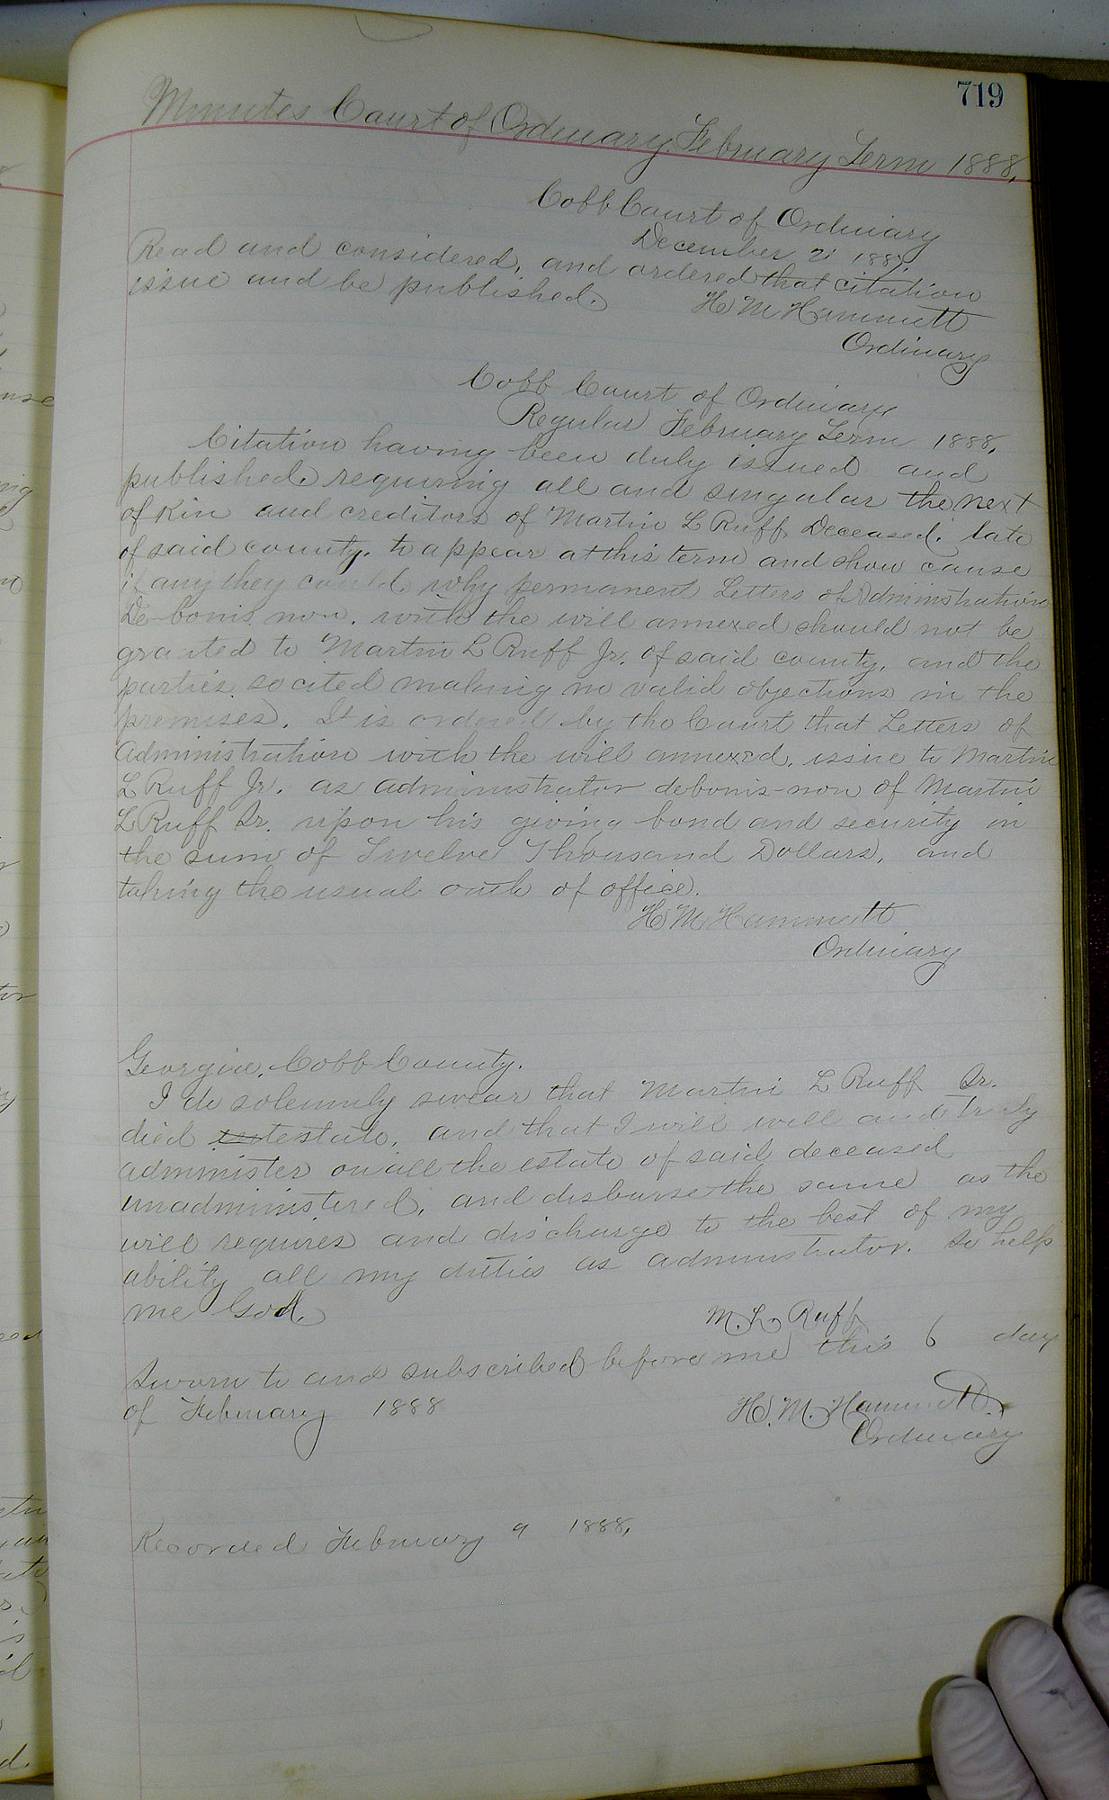 719
Minutes Court of Ordinary February Term 1888,
Cobb Court of Ordinary
December 21 1887
Read and considered, and ordered that citation
issue and be published.
H M Hammett
Ordinary
Cobb Court of Ordinary
Regular February Term 1888,
Citation having been duly issued and
published requiring all and singular the next
of Kin and creditors of Martin L Ruff Deceased, late
of said county, to appear at this term and show cause
if any they could why permanent Letters of Administration
De-bonis non, with the will annexed should not be
granted to Martin L Ruff Jr. of said county, and the
parties so cited making no valid objections in the
premises. It is ordered by the Court that Letters of
Administration with the will annexed, issue to Martin
L Ruff Jr. as administrator debonis-non of Martin
L Ruff Sr. upon his giving bond and security in
the sum of Twelve Thousand Dollars, and
taking the usual oath of office.
H M Hammett
Ordinary
Georgia, Cobb County.
I do solemnly swear that Martin L Ruff Sr.
died testate, and that I will well and truly
administer on all the estate of said deceased
unadministered, and disburse the same as the
will requires and discharge to the best of my
ability all my duties as administrator. So help
me God.
M. L. Ruff
Sworn to and subscribed before me this 6 day
of February 1888
H. M. Hammett
Ordinary
Recorded February 9 1888,